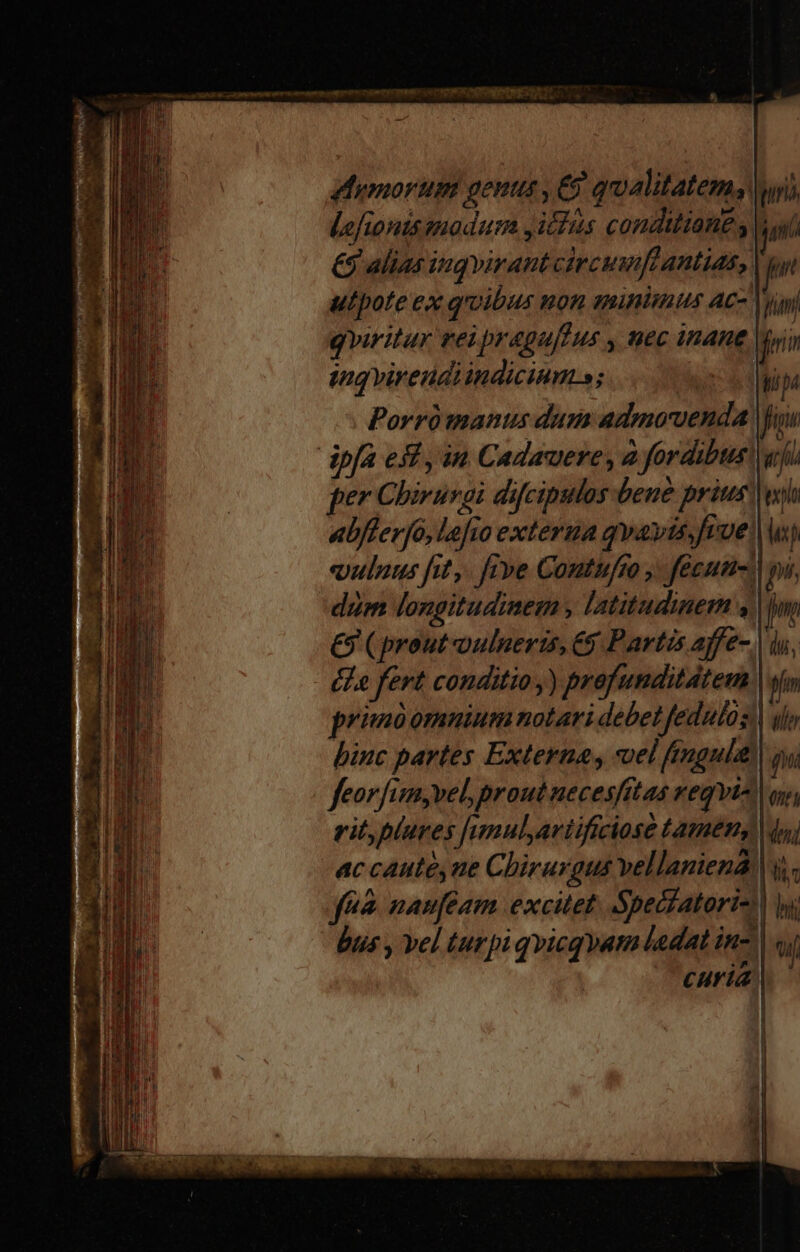 Armorum genus, & qvalitatem,
læsionis modum, ictûs conditionē,
& alias inqvirant circumstantias,
utpote ex qvibus non minimus ac-
qviritur rei prægustus, nec inane
inqvirendi indicium;
Porrò manus dum admovenda
ipsa est, in Cadavere, à sordibus
per Chirurgi discipulos benè prius
abstersô, læsio externa qvævis, sive
vulnus sit, sive Contusio, secun-
dùm longitudinem, latitudinem,
& (prout vulneris, & Partis affe-
ctæ fert conditio,) profunditatem
primò omnium notari debet sedulò;
hinc partes Externæ, vel singulæ
seorsim, vel, prout necessitas reqvi-
rit, plures simul, artificiosè tamen,
ac cautè, ne Chirurgus vellanienâ
suâ nauseam excitet Spectatori-
bus, vel turpi qvicqvam lædat in-
curiâ